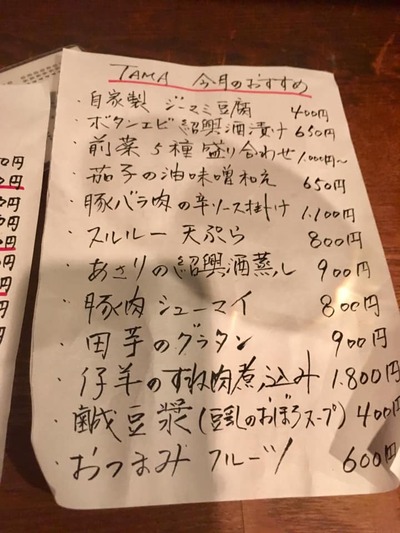 TAMA 今月のおすすめ
・自家製 ジーマミ豆腐 400円
・ボタンエビ紹興酒漬け 650円
・前菜5種盛り合わせ 1.000円〜
・茄子の油味噌和え 650円
・豚バラ肉の辛ソース掛け 1.100円
・スルルー天ぷら 800円
・あさりの紹興酒蒸し 900円
・豚肉シューマイ 800円
・田芋のグラタン 900円
・仔羊のすね肉煮込み 1.800円
・鹹豆漿(豆乳のおぼろスープ) 400円
・おつまみフルーツ 600円
0円
0円
円
円
円
円
円
円